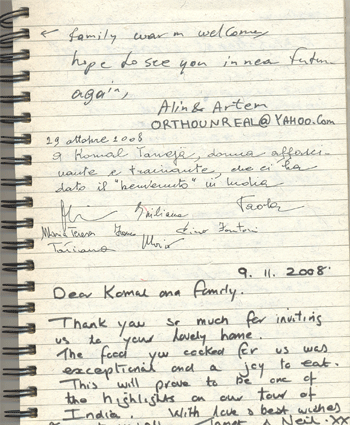 ← family warm welcome,
hope to see you in near future
again,
Alin & Artem
ORTHOUNREAL@YAHOO.COM
29 ottobre 2008
a Komal Taneja, donna affasci-
nante e trainante, che ci ha
dato il "benvenuto" in India
Emiliana Paola
Maria Teresa
Tatiana Mario
9. 11. 2008.
Dear Komal and family.
Thank you so much for inviting
us to your lovely home.
The food you cooked for us was
exceptional and a joy to eat.
This will prove to be one of
the highlights on our tour of
India. With love & best wishes
Janet & Neil. XX